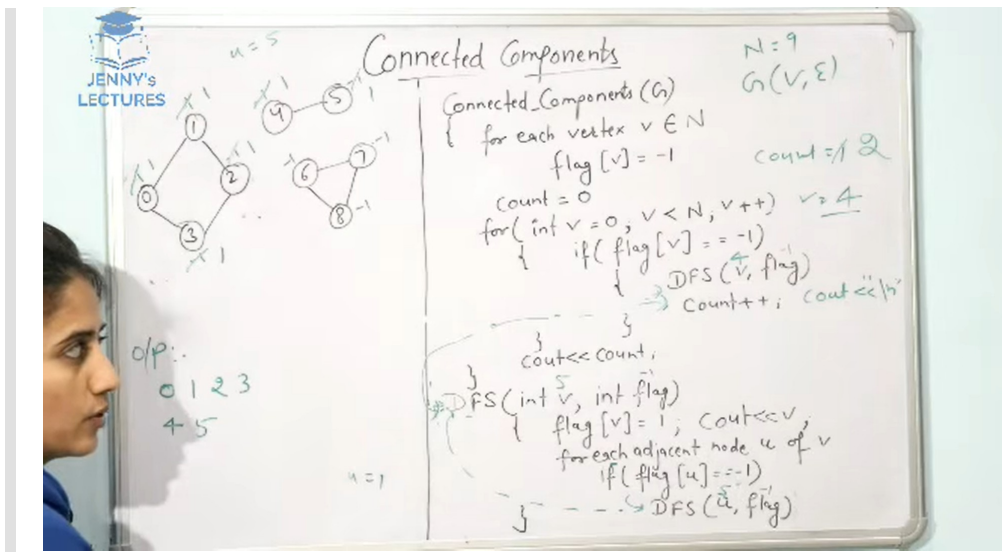 JENNY's
LECTURES
u = 5
Connected Components
N = 9
G(V, E)
1
1
1
1
1
0
1
2
3
4
5
6
7
8
1
-1
-1
-1
Connected_Components (G)
{ for each vertex v ∈ N
flag [v] = -1
count = 0
count = 1 2
for( int v = 0, v < N, v++)
v = 4
{ if( flag [v] = = -1)
{ DFS (v, flag)
4 -1
Count++; cout <<"\n"
}
}
cout << count,
}
DFS (int v, int flag)
5 -1
{ flag [v] = 1; Cout<<v,
for each adjacent node u of v
if( flag [u] == -1)
DFS (u, flag)
5 -1
}
O/P:-
0 1 2 3
4 5
u = 1